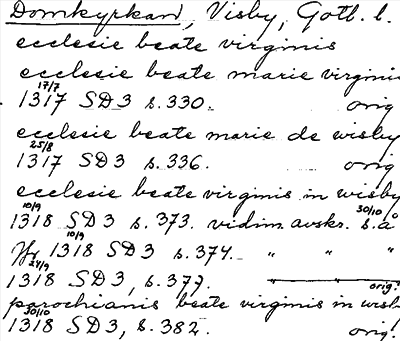 Domkyrkan, Visby, Gotl. l.
ecclesie beate virginis
ecclesie beate marie virginis
17/7
1317 SD3 s. 330. orig
ecclesie beate marie de wisby
25/8
1317 SD3 s. 336. orig
ecclesie beate virginis in wisby
10/9 30/10
1318 SD3 s. 373. vidim. avskr. s.å
10/9
1318 SD3 s. 374. " " "
24/9
1318 SD3, s. 377. " orig.
parochianis beate virginis in wisb
30/10
1318 SD3, s. 382. orig.